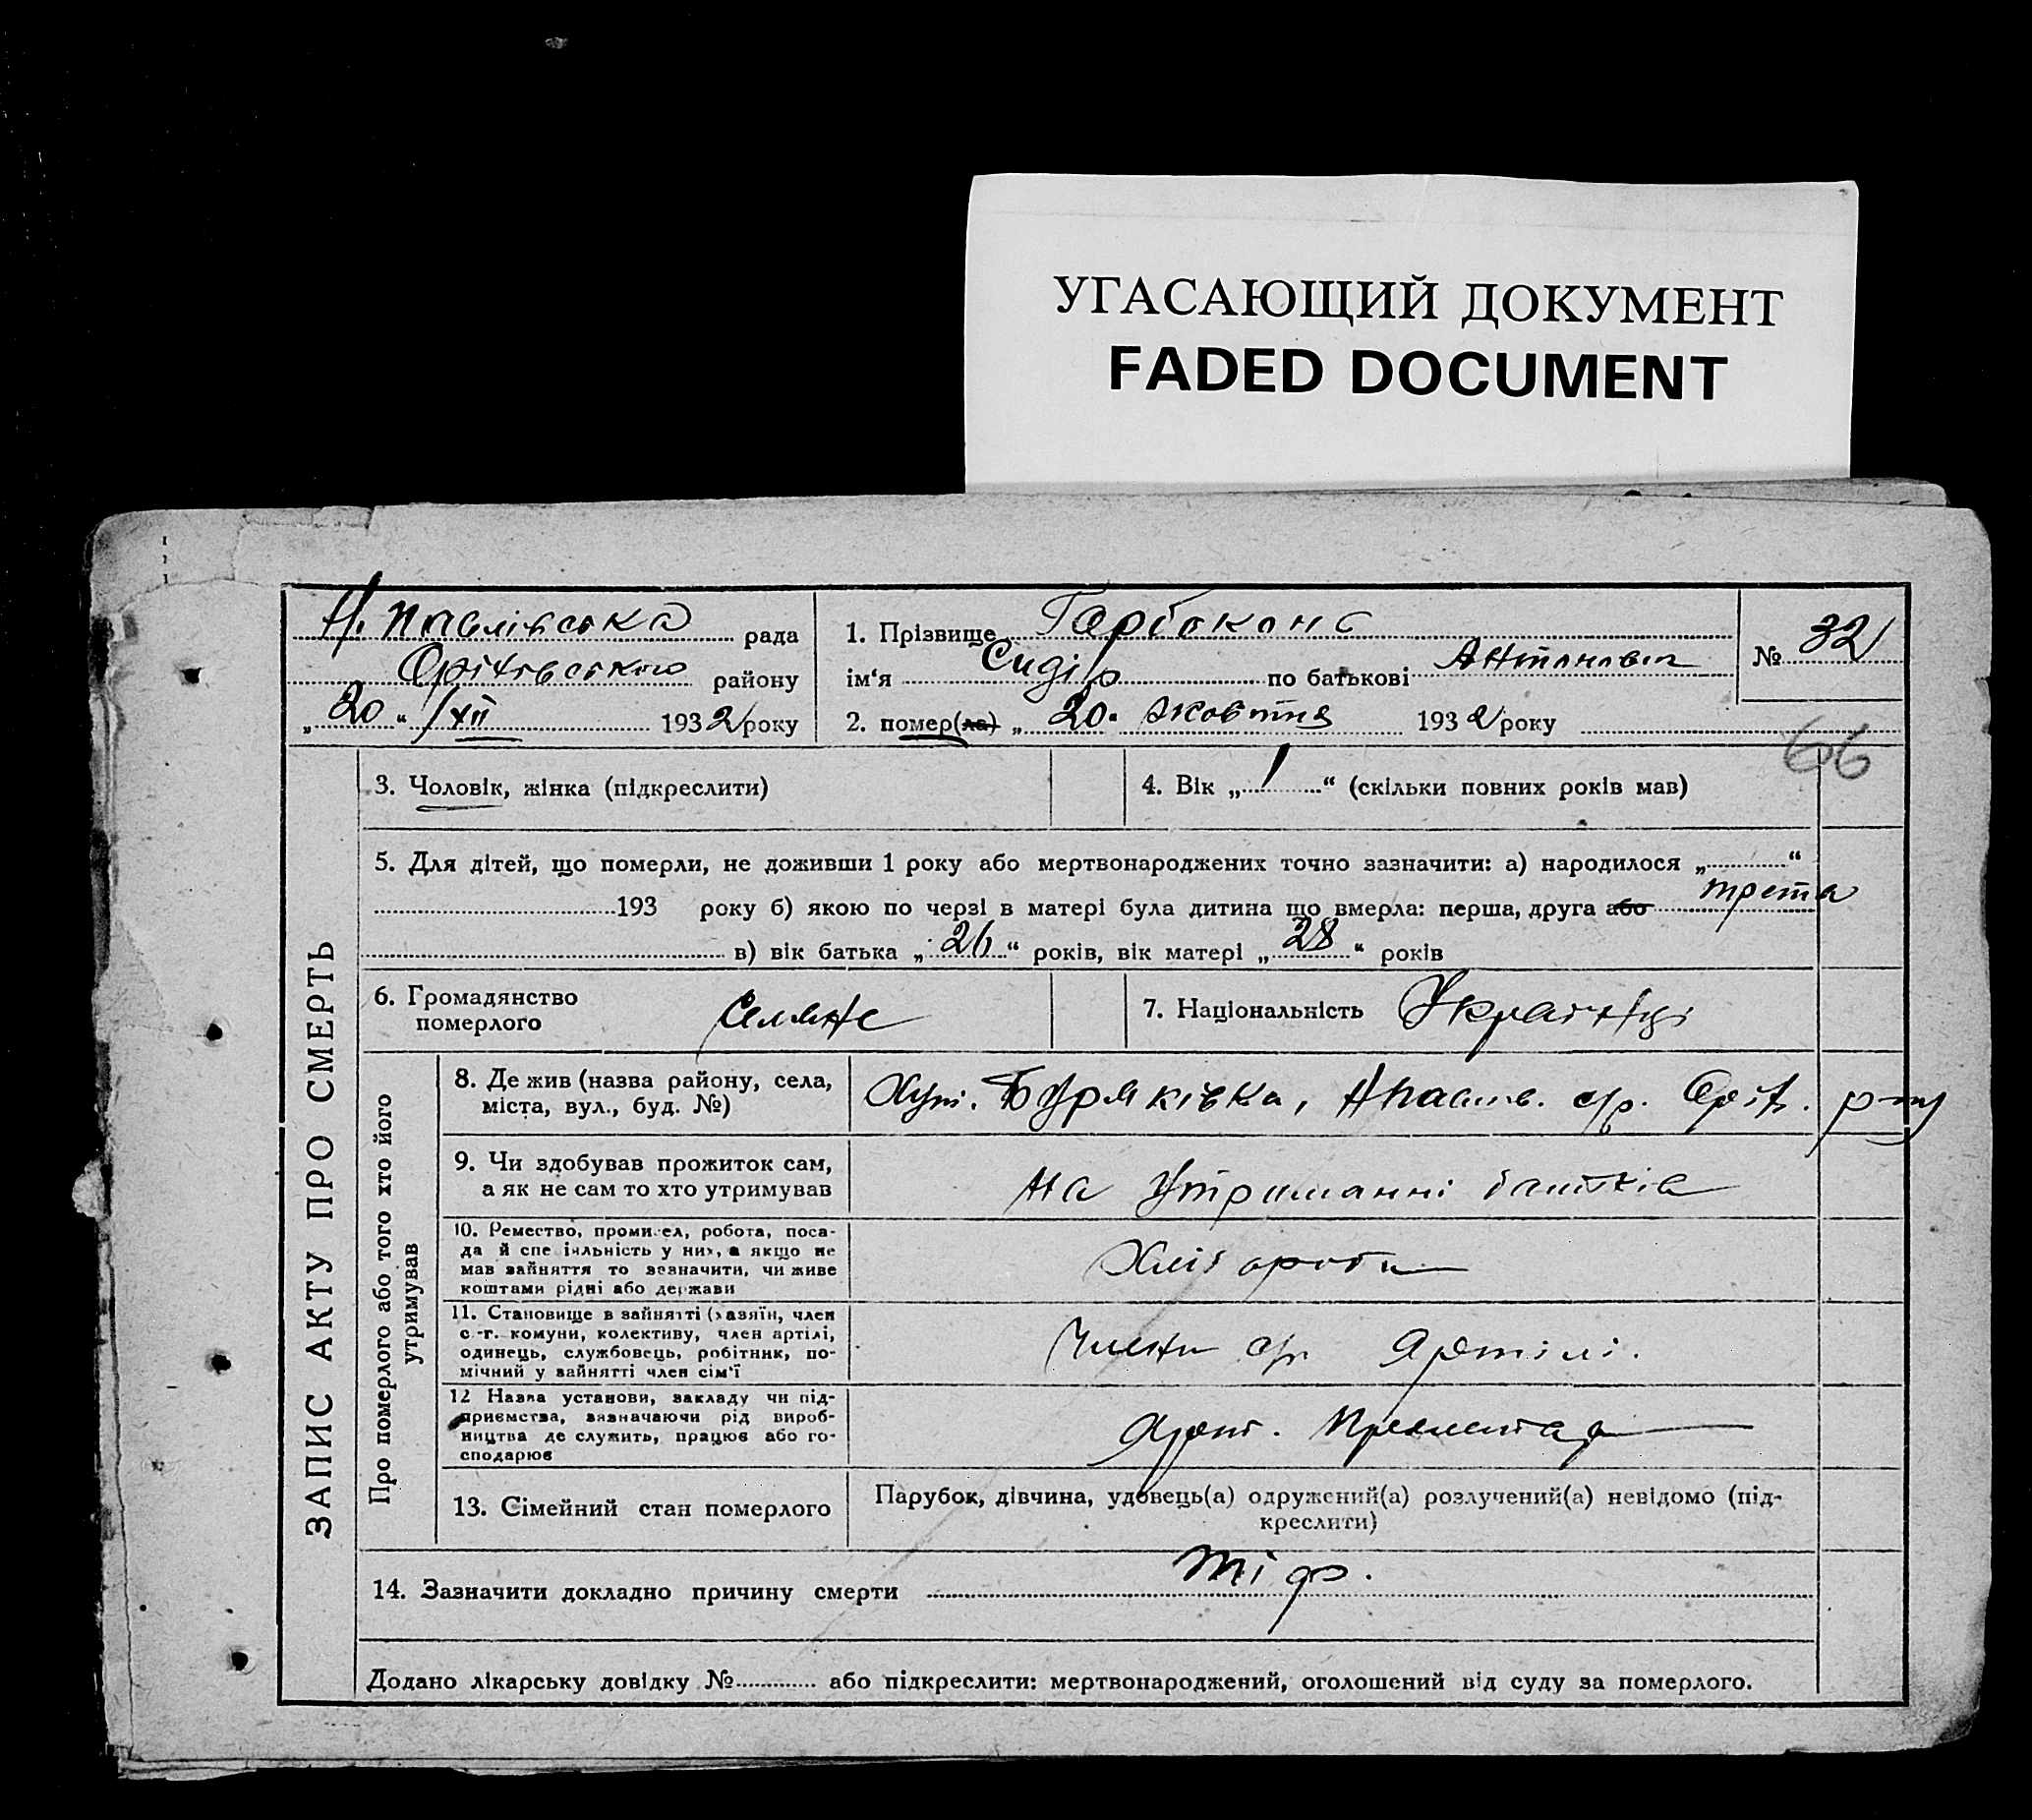 УГАСАЮЩИЙ ДОКУМЕНТ
FADED DOCUMENT
Н. Павлівська рада
Оріхівського району
„20“ /XII 1932 року
1. Прізвище Гарбоконь
ім‘я Сидір по батькові Антонович
2. помер(ла) „20“ жовтня 1932 року
№ 32
66
ЗАПИС АКТУ ПРО СМЕРТЬ
3. Чоловік, жінка (підкреслити)
4. Вік „1“ (скільки повних років мав)
5. Для дітей, що померли, не доживши 1 року або мертвонароджених точно зазначити: а) народилося „ “
193 року б) якою по черзі в матері була дитина що вмерла: перша, друга або трета
в) вік батька „26“ років, вік матері „28“ років
6. Громадянство
померлого
Селяне
7. Національність Українці
Про померлого або того хто його
утримував
8. Де жив (назва району, села,
міста, вул., буд. №)
Хут. Буряківка, с/р. Оріх. р-ну
9. Чи здобував прожиток сам,
а як не сам то хто утримував
на утриманні батьків
10. Ремество, промисел, робота, поса-
да й спеціяльність у них, а якщо не
мав зайняття то зазначити, чи живе
коштами рідні або держави
Хліборобы
11. Становище в зайнятті (хазяїн, член
с.-г. комуни, колективу, член артілі,
одинець, службовець, робітник, по-
мічний у зайнятті член сім‘ї
Члени с/г Артілі.
12 Назва установи, закладу чи під-
приємства, зазначаючи рід вироб-
ництва де служить, працює або го-
сподарює
Арт.
13. Сімейний стан померлого
Парубок, дівчина, удовець(а) одружений(а) розлучений(а) невідомо (під-
креслити)
14. Зазначити докладно причину смерти Тіф.
Додано лікарську довідку № або підкреслити: мертвонароджений, оголошений від суду за померлого.